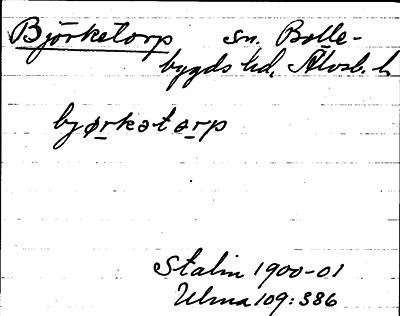 Björketorp sn. Bolle-
bygds hd, Älvsb. l.
bjørkətorp
Stalin 1900-01
Ulma 109:386